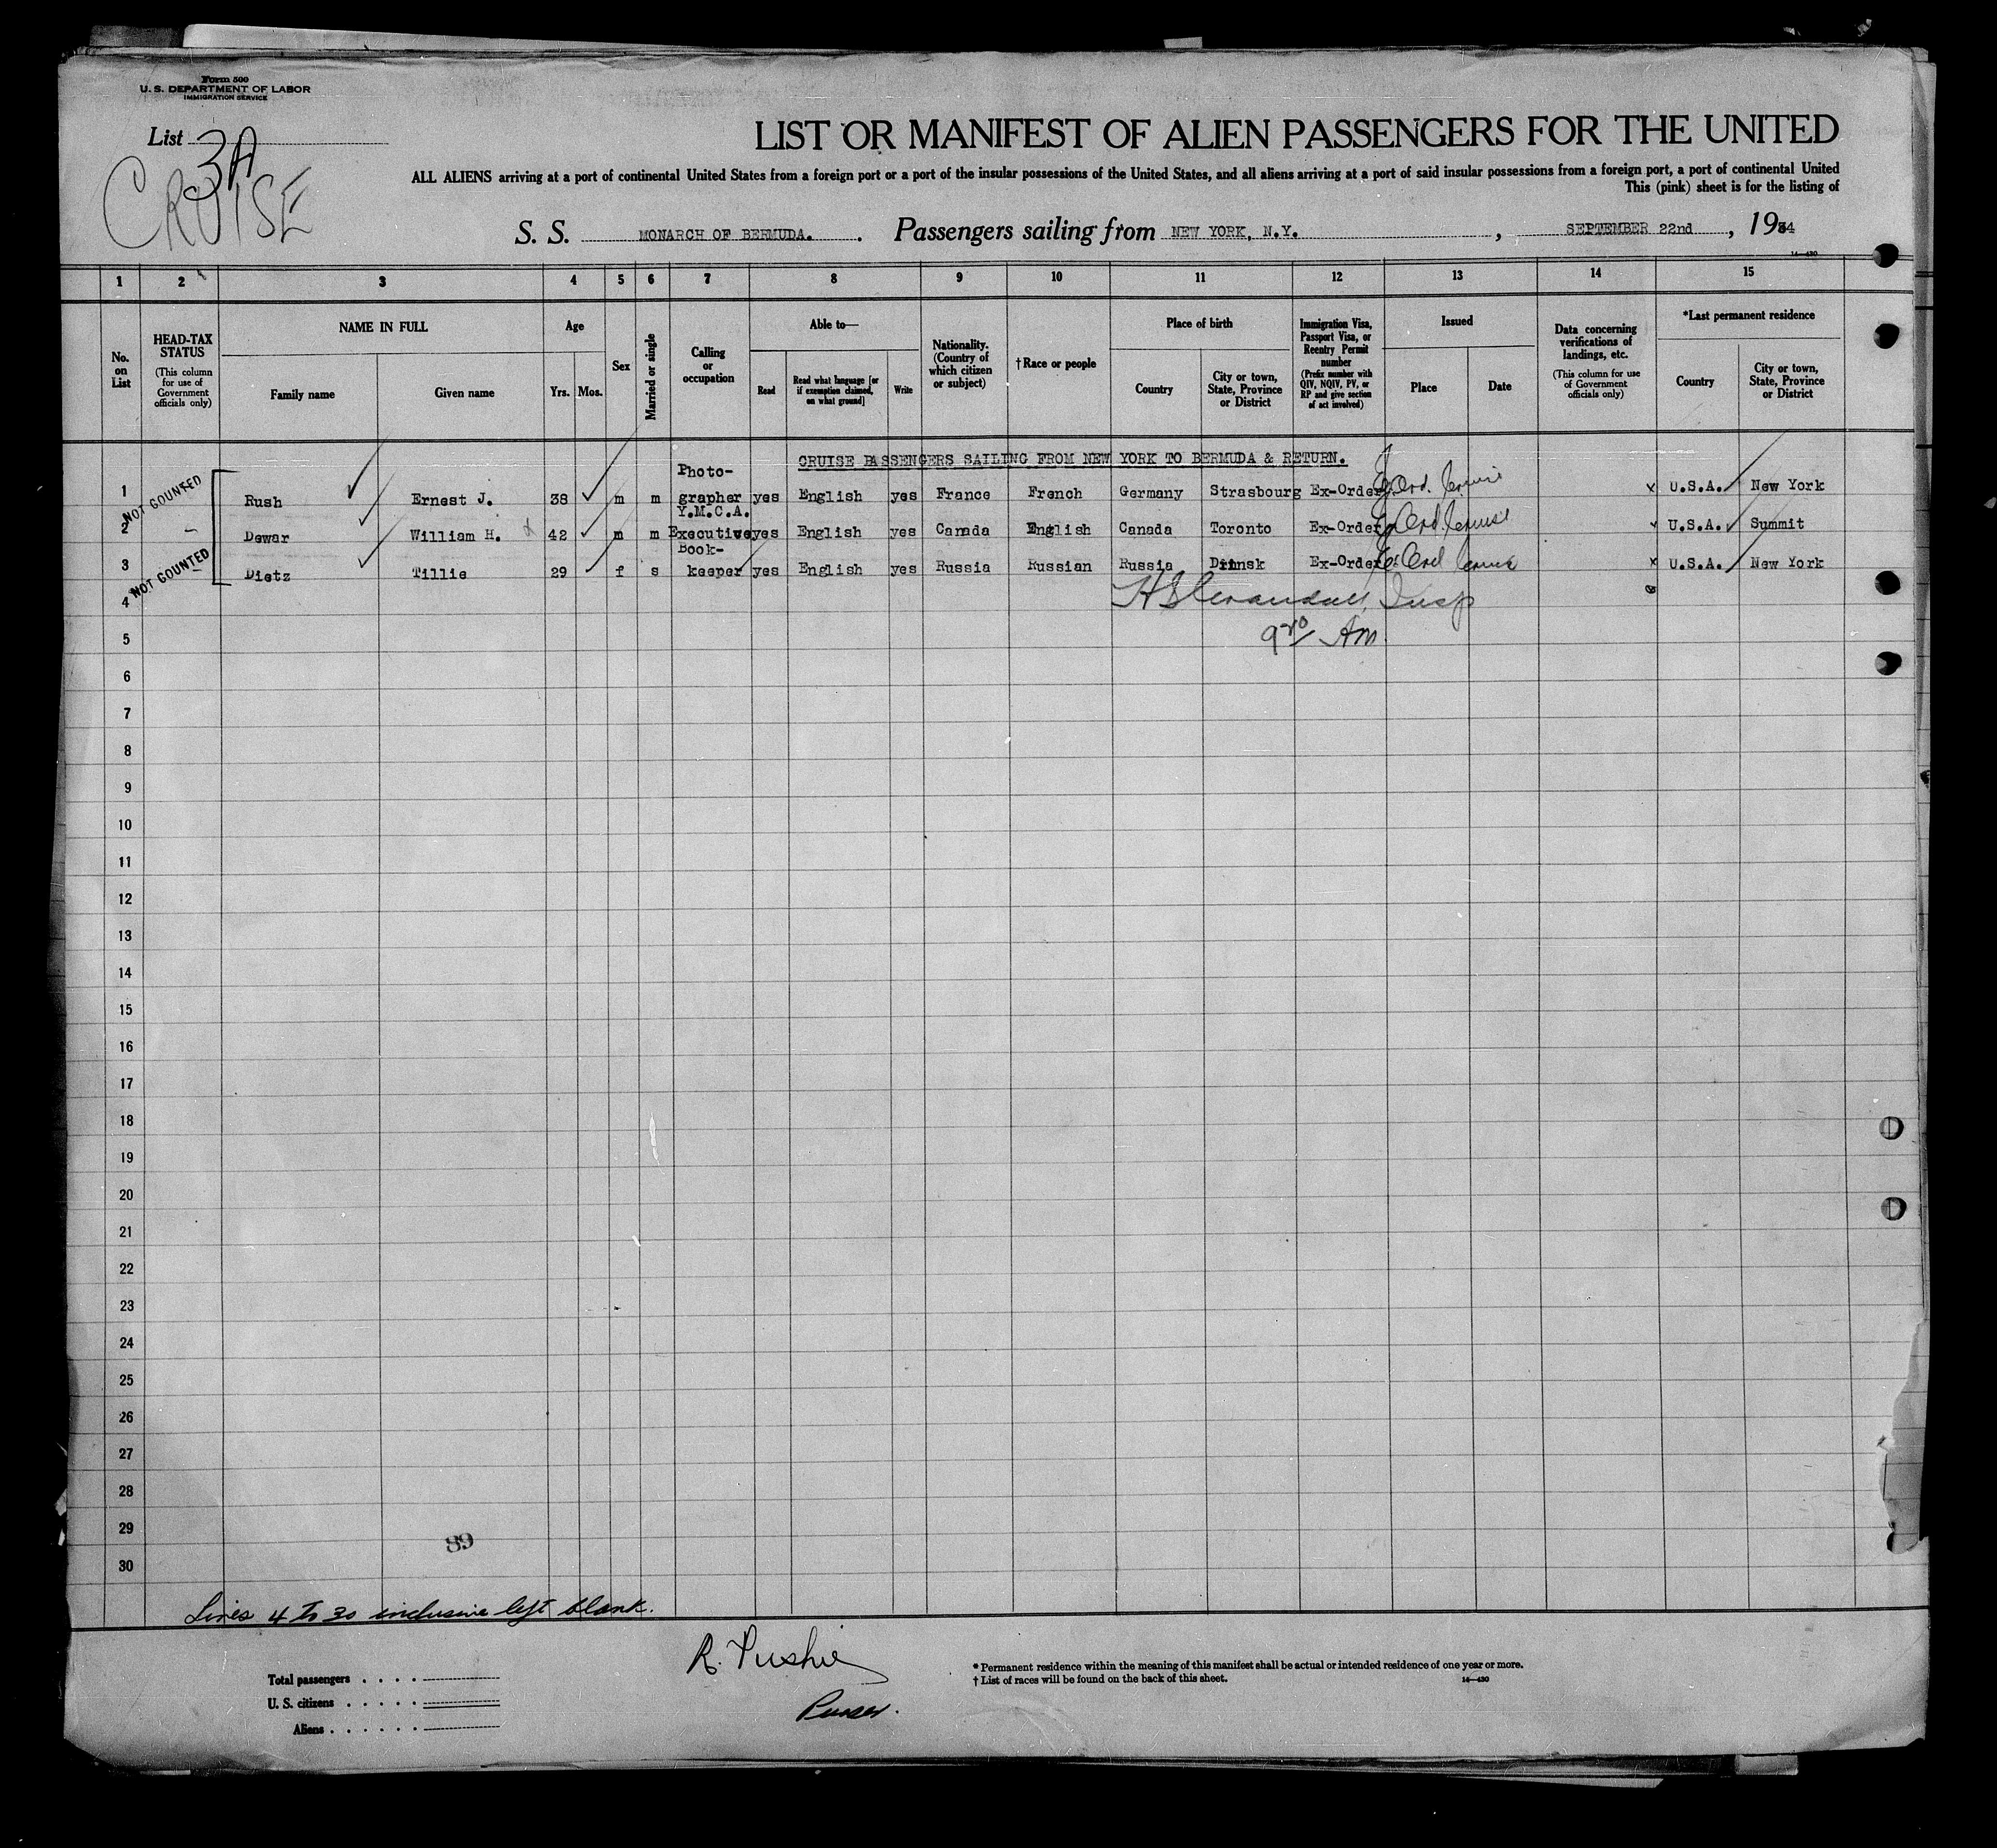 Form 500
U. S. DEPARTMENT OF LABOR
IMMIGRATION SERVICE
List 3A
CRUISE
LIST OR MANIFEST OF ALIEN PASSENGERS FOR THE UNITED
ALL ALIENS arriving at a port of continental United States from a foreign port or a port of the insular possessions of the United States, and all aliens arriving at a port of said insular possessions from a foreign port, a port of continental United
This (pink) sheet is for the listing of
S. S. MONARCH OF BERMUDA. . Passengers sailing from NEW YORK, N.Y. , SEPTEMBER 22nd , 1934
14—430
1 2 3 4 5 6 7 8 9 10 11 12 13 14 15
No. on List
HEAD-TAX STATUS (This column for use of Government officials only)
NAME IN FULL
Family name
Given name
Age
Yrs.
Mos.
Sex
Married or single
Calling or occupation
Able to—
Read
Read what language [or if exemption claimed, on what ground]
Write
Nationality. (Country of which citizen or subject)
†Race or people
Place of birth
Country
City or town, State, Province or District
Immigration Visa, Passport Visa, or Reentry Permit number (Prefix number with QIV, NQIV, PV, or RP and give section of act involved)
Issued
Place
Date
Data concerning verifications of landings, etc. (This column for use of Government officials only)
*Last permanent residence
Country
City or town, State, Province or District
CRUISE PASSENGERS SAILING FROM NEW YORK TO BERMUDA & RETURN.
NOT COUNTED
1 Rush Ernest J. 38 m m Photo-grapher yes English yes France French Germany Strasbourg Ex-Order x U.S.A. New York
2 Dewar William H. 42 m m Y.M.C.A. Executive yes English yes Canada English Canada Toronto Ex-Order x U.S.A. Summit
NOT COUNTED
3 Dietz Tillie 29 f s Book-keeper yes English yes Russia Russian Russia Ex-Order x U.S.A. New York
4 Insp
5 Am.
6
7
8
9
10
11
12
13
14
15
16
17
18
19
20
21
22
23
24
25
26
27
28
29
30
89
Lines 4 to 30 inclusive left blank.
Total passengers
U. S. citizens
Aliens
R. Pushie
Purser.
* Permanent residence within the meaning of this manifest shall be actual or intended residence of one year or more.
† List of races will be found on the back of this sheet.
14—430